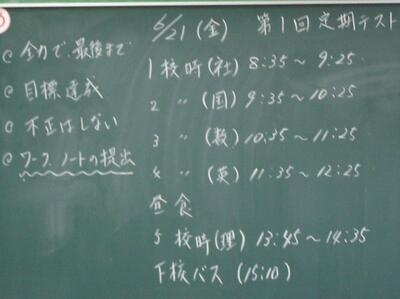 6/21(金) 第1回定期テスト
@ 全力で最後まで
@ 目標達成
@ 不正はしない
@ ワーク、ノートの提出
1校時(社) 8:35～9:25
2 〃 (国) 9:35～10:25
3 〃 (数) 10:35～11:25
4 〃 (英) 11:35～12:25
昼食
5校時(理) 13:45～14:35
下校バス (15:10)